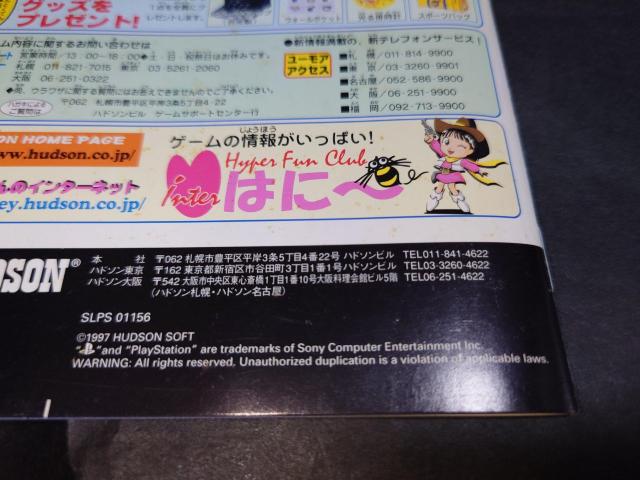 グッズを
プレゼント!
ウォールポケット
スポーツバッグ
ム内容に関するお問い合わせは
営業時間/13:00〜18:00●土・日・祝祭日はお休みです。
札幌 011-821-7015 東京 03-5261-2060
大阪 06-251-0322
●尚、ウラワザに関する質問にはお答えできませんのでご了承ください。
ハガキによる
ご質問は
〒062 札幌市豊平区平岸3条5丁目4-22
ハドソンビル ゲームサポートセンター行
●新情報満載の、新テレフォンサービス!
ユーモア
アクセス
■札幌/011-814-9900
■東京/03-3260-9901
■名古屋/052-586-9900
■大阪/06-251-9900
■福岡/092-713-9900
ON HOME PAGE
www.hudson.co.jp/
んのインターネット
ey.hudson.co.jp/
じょうほう
ゲームの情報がいっぱい!
Hyper Fun Club
Inter はに〜
HUDSON®
本社 〒062 札幌市豊平区平岸3条5丁目4番22号 ハドソンビル TEL011-841-4622
ハドソン東京 〒162 東京都新宿区市谷田町3丁目1番1号 ハドソンビル TEL03-3260-4622
ハドソン大阪 〒542 大阪市中央区東心斎橋1丁目10号大阪料理会館ビル5階 TEL06-251-4622
(ハドソン札幌・ハドソン名古屋)
SLPS 01156
©1997 HUDSON SOFT
" " and "PlayStation" are trademarks of Sony Computer Entertainment Inc.
WARNING: All rights reserved. Unauthorized duplication is a violation of applicable laws.